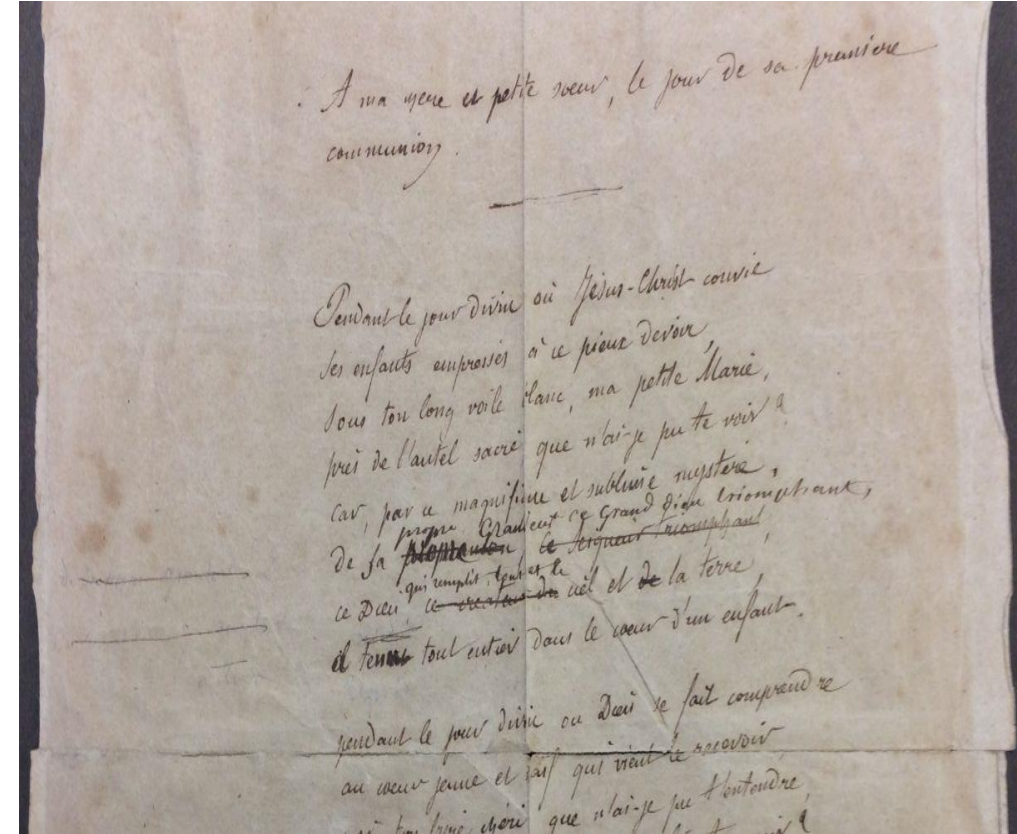 A ma chere et petite soeur, le jour de sa premiere
communion.
Pendant le jour divin où Jésus-Christ convie
ses enfants empressés à ce pieux devoir,
sous ton long voile blanc, ma petite Marie,
près de l'autel sacré que n'ai-je pu te voir ?
car, par ce magnifique et sublime mystère,
propre ce Grand Dieu triomphant,
de sa le Seigneur triomphant
qui remplit, tout et le
ce Dieu, ce créateur du ciel et de la terre,
il tout entier dans le coeur d'un enfant.
pendant le jour divin ou Dieu se fait comprendre
au coeur jeune et naïf qui vient le recevoir
ton frère chéri que n'ai-je pu t'entendre,